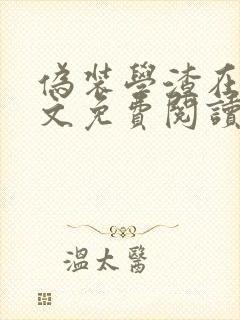 偽裝學渣在
文免費閱讀
溫太醫